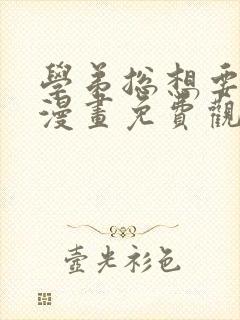 學弟總想要
漫畫免費觀
壺光衫色